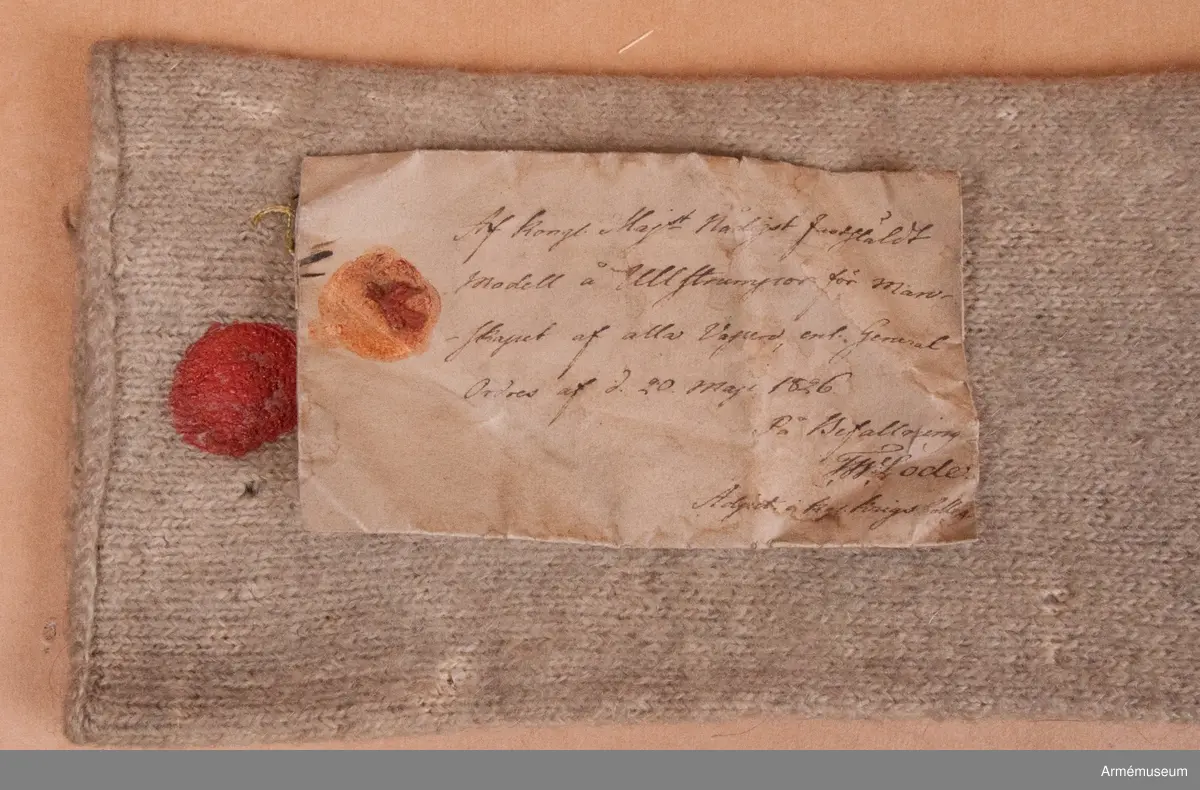 Af Kongl. Majst Nådigst fastställdt
Modell å Ullstrumpor för Man-
-skapet af alla Vapen, enl. General
Ordres af d. 20. Maji 1826
På Befallning
Adjut. å Kgl. Krigs
Armémuseum